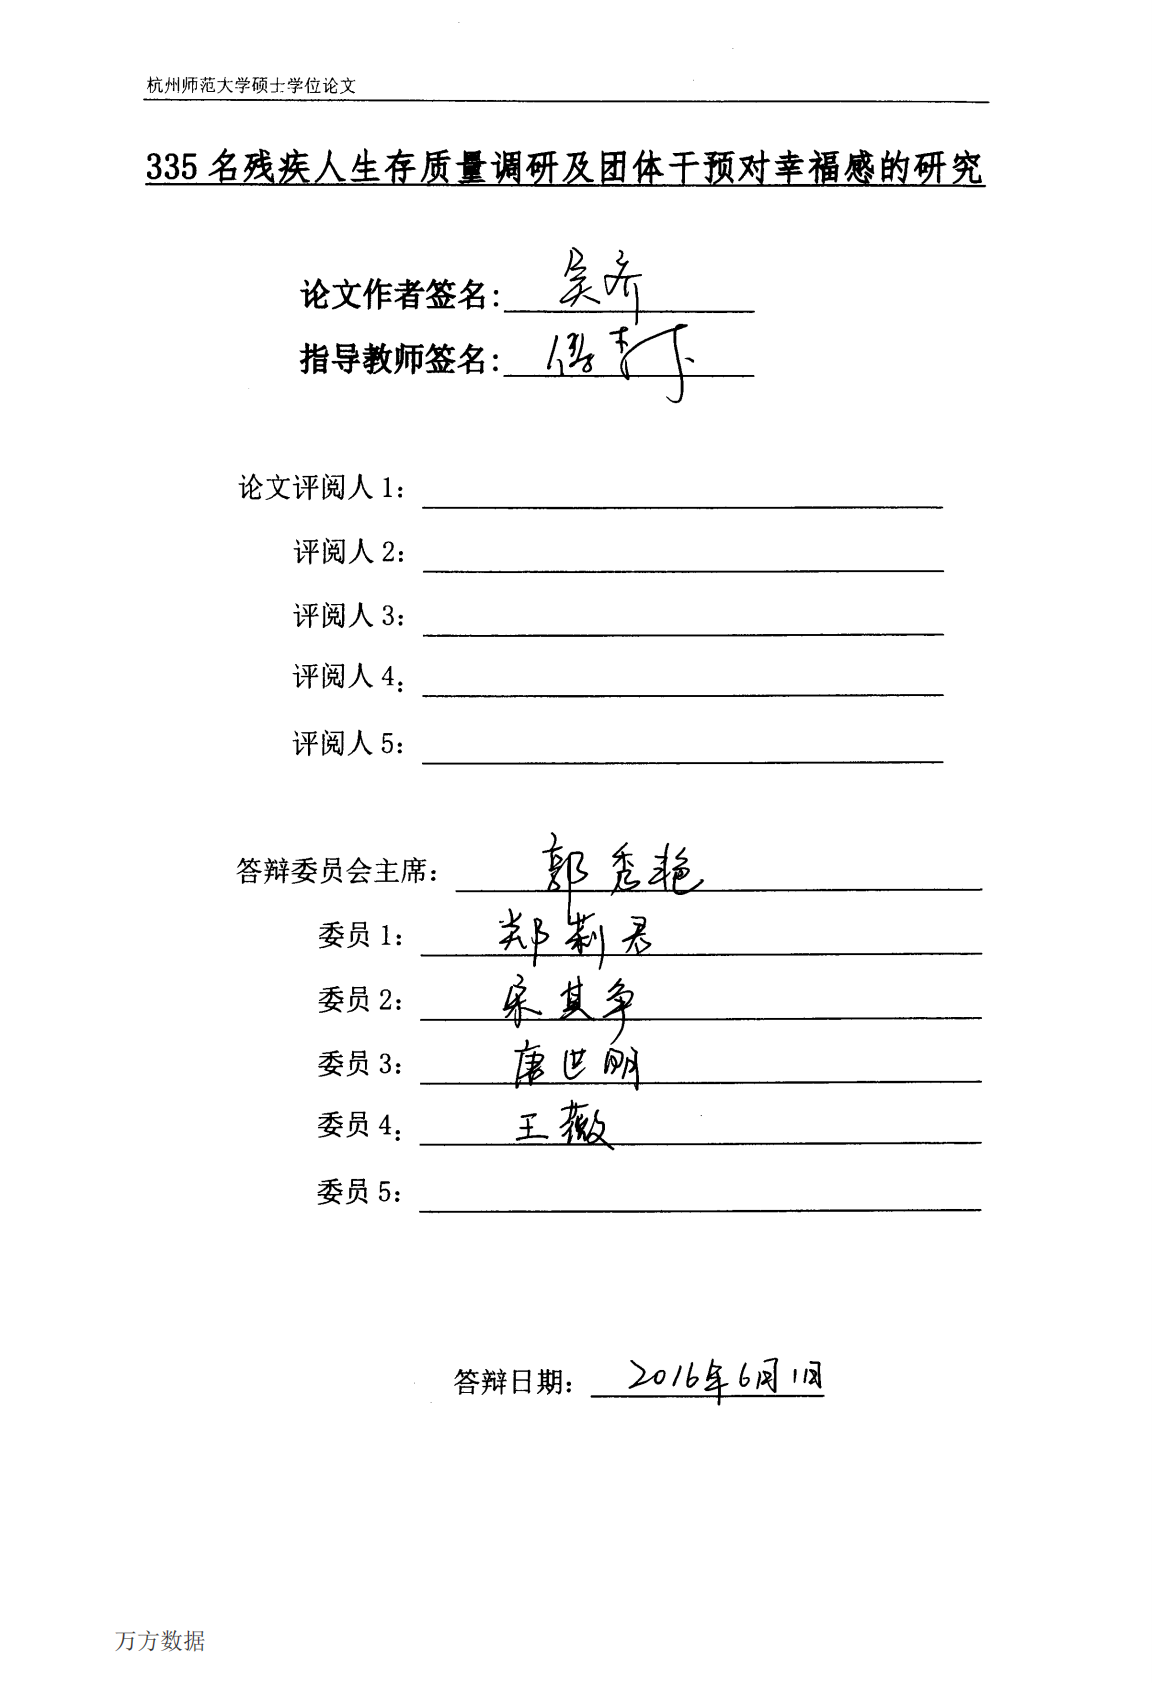 杭州师范大学硕士学位论文
335名残疾人生存质量调研及团体干预对幸福感的研究
论文作者签名: 吴齐
指导教师签名:
论文评阅人1:
评阅人2:
评阅人3:
评阅人4:
评阅人5:
答辩委员会主席: 郭秀艳
委员1: 郑莉君
委员2: 宋其争
委员3: 唐世明
委员4: 王薇
委员5:
答辩日期: 2016年6月1日
万方数据